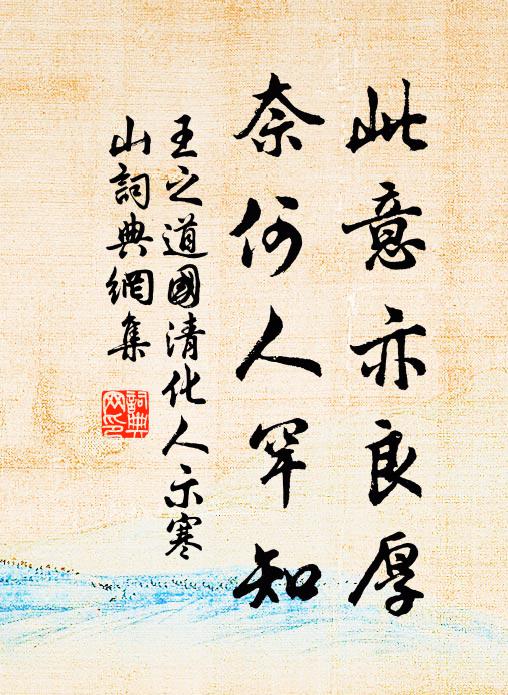 此意亦良厚
奈何人罕知
王之道國清化人示寒
山詞典網集
詞典
网印